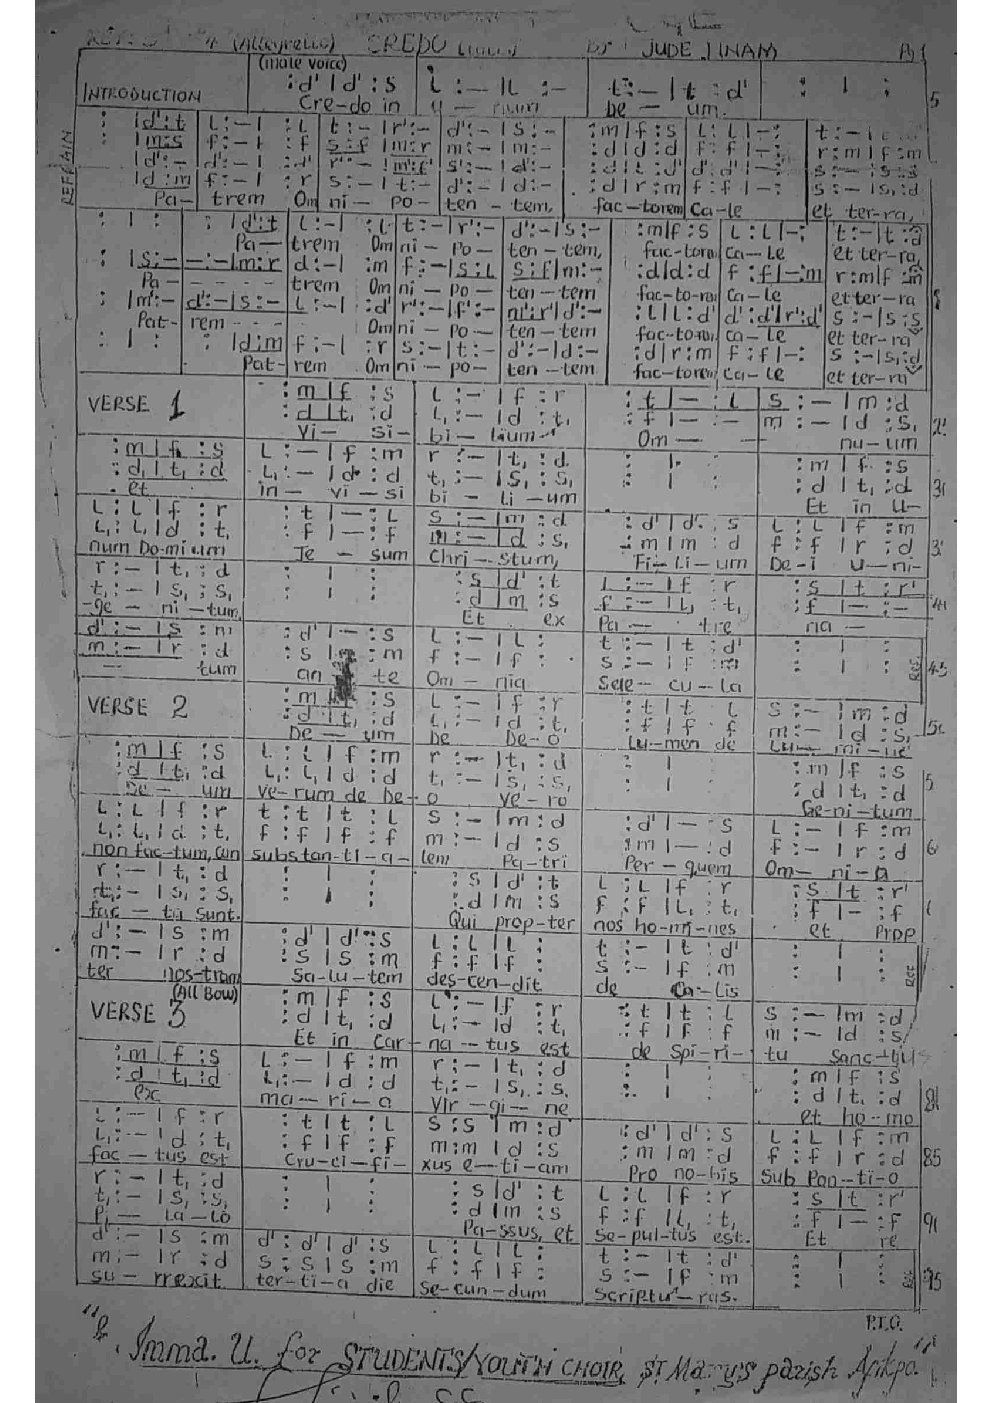 (Allegretto) CREDO By JUDE NNAM Pg 1
(male voice)
: d' | d' : s L : – | L : – t : – | t : d' : | :
INTRODUCTION Cre-do in u – num De – um. 5
REFRAIN
: | d' : t L : – | : L t : – | r' : – d' : – | s : – : m | f : s L : L | – :
: | m : s f : – | : f s : f | m : r m : – | m : – : d | d : d f : f | – : r : m | f : m
: | d' : – d' : – | : d' r' : – | m' : f' s' : – | d' : – : d | t : d' d' : d' | – : s : – | s : s
: | d : m f : – | : r s : – | t : – d' : – | d : – : d | r : m f : f | – : s : – | s, : d
Pa- trem Om ni – po – ten – tem, fac-torem Ca-le et ter-ra,
: | : : | d' : t L : – | : L t : – | r' : – d' : – | s : – : m | f : s L : L | – : t : – | t : d
Pa – trem Om ni – po – ten – tem, fac-torem Ca-le et ter-ra,
: | s : – – : – | m : r d : – | : m f : – | s : L s : f | m : – : d | d : d f : f | – : m r : m | f : m
Pa - - - - trem Om ni – po – ten – tem fac-to-rem Ca-le et ter-ra
: | m' : – d' : – | s : – L : – | : d' r' : – | f' : – m' : r' | d' : – : L | L : d' d' : d' | r' : d' s : – | s : s
Pat- rem - - - Om ni – po – ten – tem fac-torem ca-le et ter-ra
: | : : | d : m f : – | : r s : – | t : – d' : – | d : – : d | r : m f : f | – : s : – | s, : d
Pat- rem Om ni – po – ten – tem fac-torem ca-le et ter-ra
VERSE 1 : m | f : s L : – | f : r : t | – : L s : – | m : d
: d | t, : d L, : – | d : t, : f | – : – m : – | d : s,
Vi – si- bi – lium Om — – nu-um
: m | f : s L : – | f : m r : – | t, : d : | : : m | f : s
: d | t, : d L, : – | d : d t, : – | s, : s, : | : : d | t, : d
et in – vi – si bi – li – um Et in U-
L : L | f : r : t | – : L s : – | m : d : d' | d' : s L : L | f : m
L, : L, | d : t, : f | – : f m : – | d : s, : m | m : d f : f | r : d
num Dominum Je – sum Chri – stum, Fi-li-um De-i u-ni-
r : – | t, : d : | : : s | d' : t L : – | f : r : s | t : r'
t, : – | s, : s, : | : : d | m : s f : – | L, : t, : f | – : –
-ge – ni-tum, Et ex Pa – tre na –
d' : – | s : m : d' | – : s L : – | L : t : – | t : d' : | :
m : – | r : d : s | : m f : – | f : s : – | f : m : | : Ref
– tum an te Om – nia Sae – cu – la
VERSE 2 : m | f : s L : – | f : r : t | t L s : – | m : d
: d | t, : d L, : – | d : t, : f | f f m : – | d : s,
De – um De De-o Lu-men de Lu – mi-ne
: m | f : s L : L | f : m r : – | t, : d : | : : m | f : s
: d | t, : d L, : L, | d : d t, : – | s, : s, : | : : d | t, : d
De – um Ve-rum de De-o Ve-ro Ge-ni-tum
L : L | f : r t : t | t : L s : – | m : d : d' | – : s L : – | f : m
L, : L, | d : t, f : f | f : f m : – | d : s : m | – : d f : – | r : d
non fac-tum, con substan-ti-a- lem Pa-tri Per-quem Om-ni-a
r : – | t, : d : | : : s | d' : t L : L | f : r : s | t : r'
t, : – | s, : s, : | : : d | m : s f : f | L, : t, : f | – : f
fac – ta sunt. Qui prop-ter nos ho-mi-nes et Prop
d' : – | s : m : d' | d' : s L : L | L : t : – | t : d' : | :
m : – | r : d : s | s : m f : f | f : s : – | f : m : | : Ref
ter nos-tram Sa-lu-tem des-cen-dit de Ca-lis
(All Bow)
VERSE 3 : m | f : s L : – | f : r : t | t : L s : – | m : d
: d | t, : d L, : – | d : t, : f | f : f m : – | d : s,
Et in Car- na – tus est de Spi-ri- tu Sanc-tus
: m | f : s L : – | f : m r : – | t, : d : | : : m | f : s
: d | t, : d L, : – | d : d t, : – | s, : s, : | : : d | t, : d
ex ma-ri-a Vir-gi-ne et ho-mo
L : – | f : r : t | t : L s : s | m : d : d' | d' : s L : L | f : m
L, : – | d : t, : f | f : f m : m | d : s : m | m : d f : f | r : d 85
fac – tus est Cru-ci-fi- xus e-ti-am Pro no-bis Sub Pon-ti-o
r : – | t, : d : | : : s | d' : t L : L | f : r : s | t : r'
t, : – | s, : s, : | : : d | m : s f : f | L, : t, : f | – : f
Pi – la-to Pa-ssus, et Se-pul-tus est. Et re
d' : – | s : m d' : d' | d' : s L : L | L : t : – | t : d' : | :
m : – | r : d s : s | s : m f : f | f : s : – | f : m : | :
su – rrexit ter-ti-a die Se-cun-dum Scriptu-ras.
P.T.O.
Imma. U. for STUDENTS/YOUTH CHOIR, ST Mary's parish Afikpo.